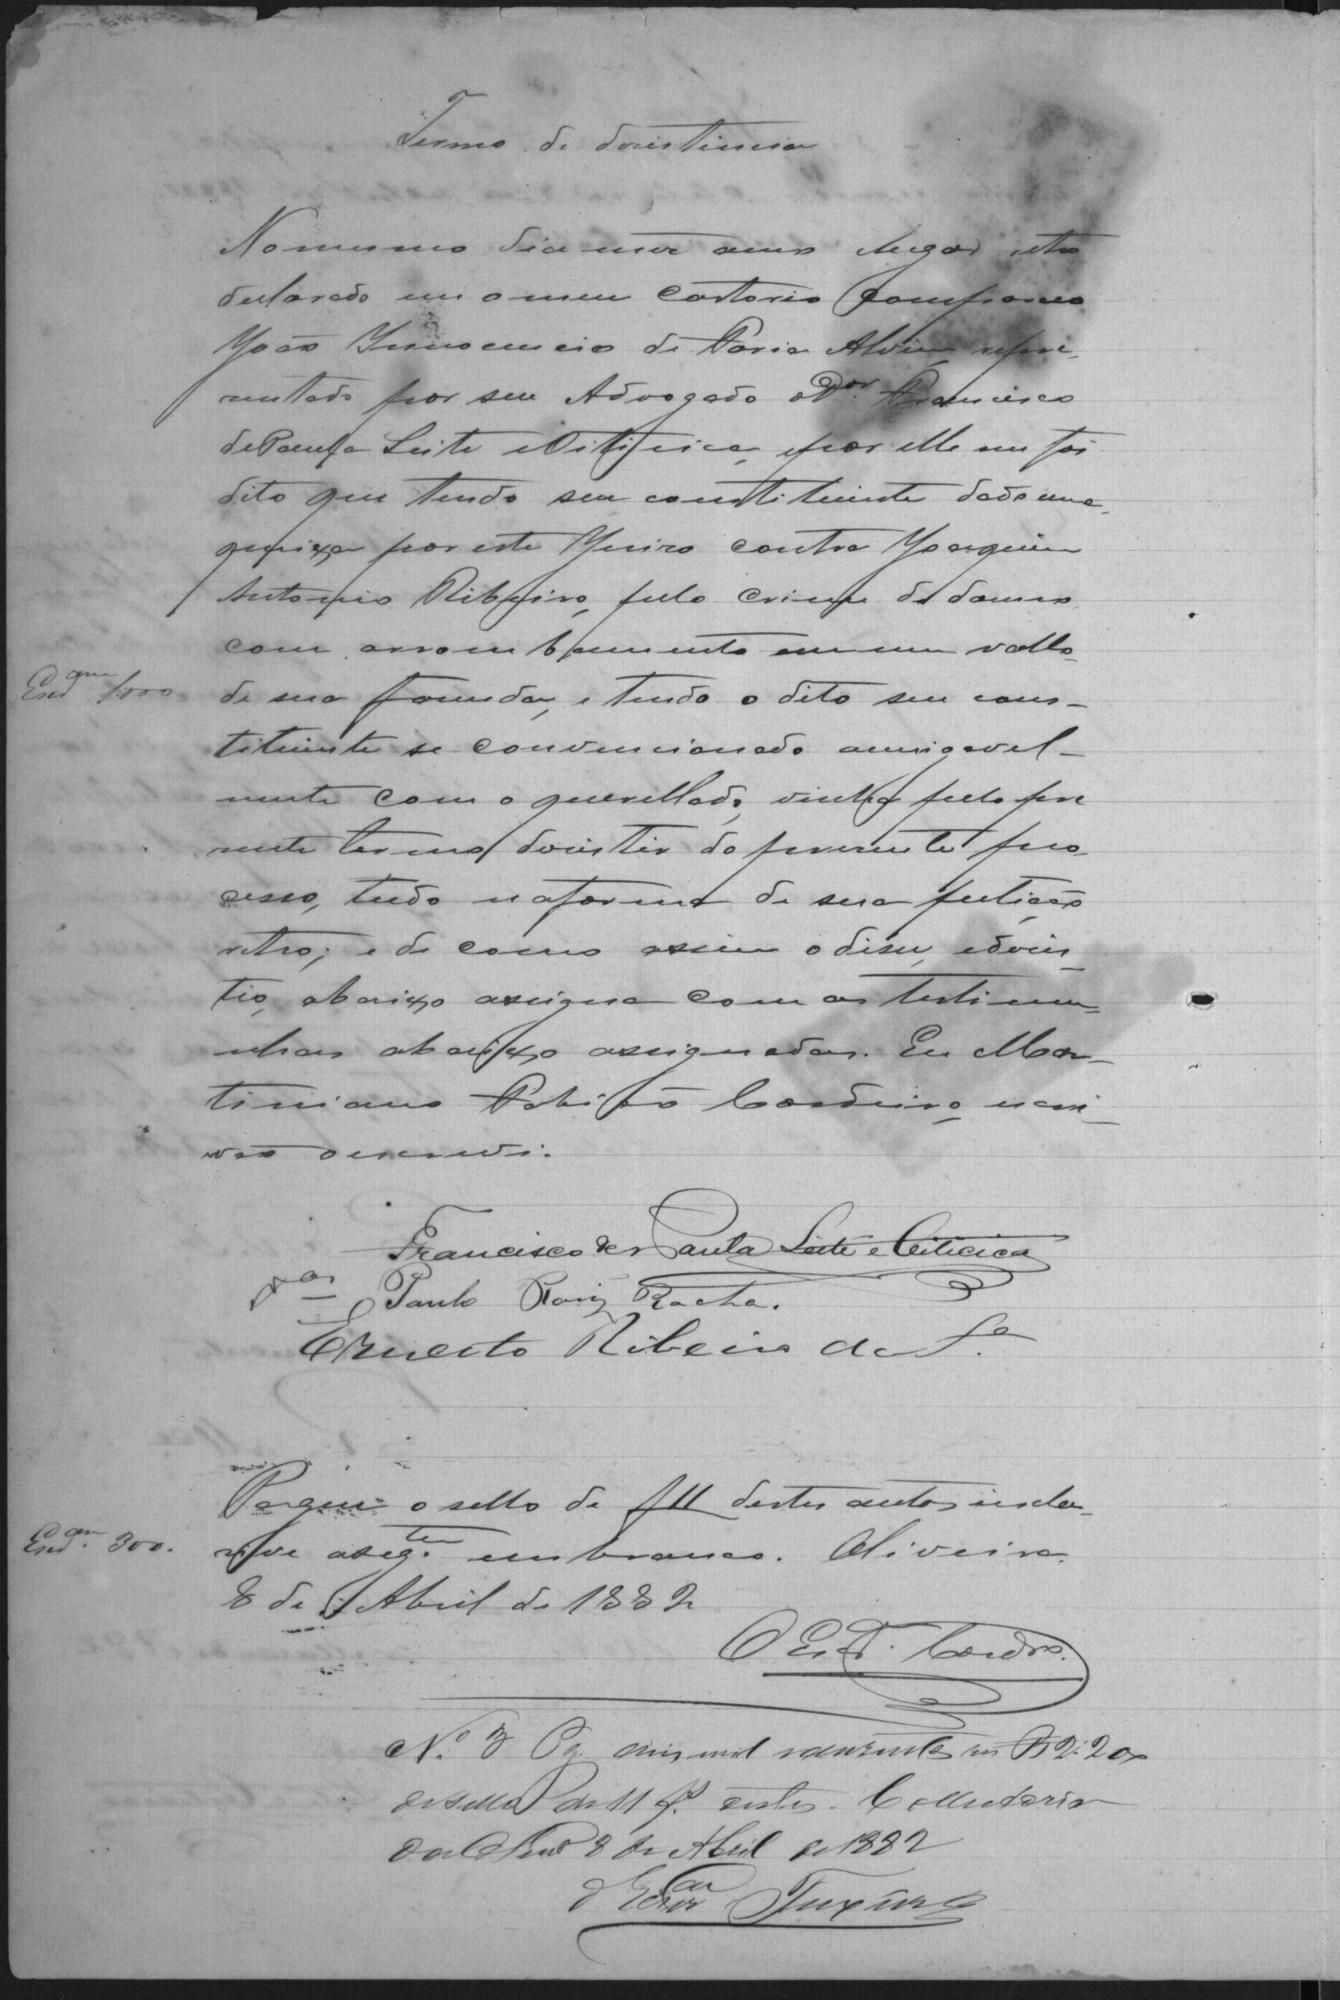 Termo de desistencia
No mesmo dia mez anno lugar retro
declarado em o meu cartorio compareceo
João Innocencio de Faria Alvim repre-
sentado por seu Advogado o Dor. Francisco
de Paula Leite e Oiticica, e por elle me foi
dito que tendo seu constituinte dado uma
queixa por este Juizo contra Joaquim
Antonio Ribeiro, pelo crime de damno
com arrombamento em um vallo
Escam 1000
de sua fazenda, e tendo o dito seu cons-
tituinte se convencionado amigavel-
mente com o querellado, vinha pelo pre
sente termo desistir do presente pro
cesso, tudo na forma de sua petição
retro; e de como assim o disse, e desis-
tio, abaixo assigna com as testimu-
nhas abaixo assignadas. Eu Mar-
timiano Cordeiro, escri-
vão o escrevi.
Francisco de Paula Leite e Oiticica
Paulo Rocha.
Ernesto Ribeiro de Sa.
Pague o sello de 11 destes autos inclu-
Escam. 300.
sive a segte. em branco. Oliveira
8 de Abril de 1882
O Escr. Cordro.
No. 3 Pg. dois mil e duzentos rs R 2:200
de sello de 11 f. destes. Collectoria
8 de Abril de 1882
O Escam